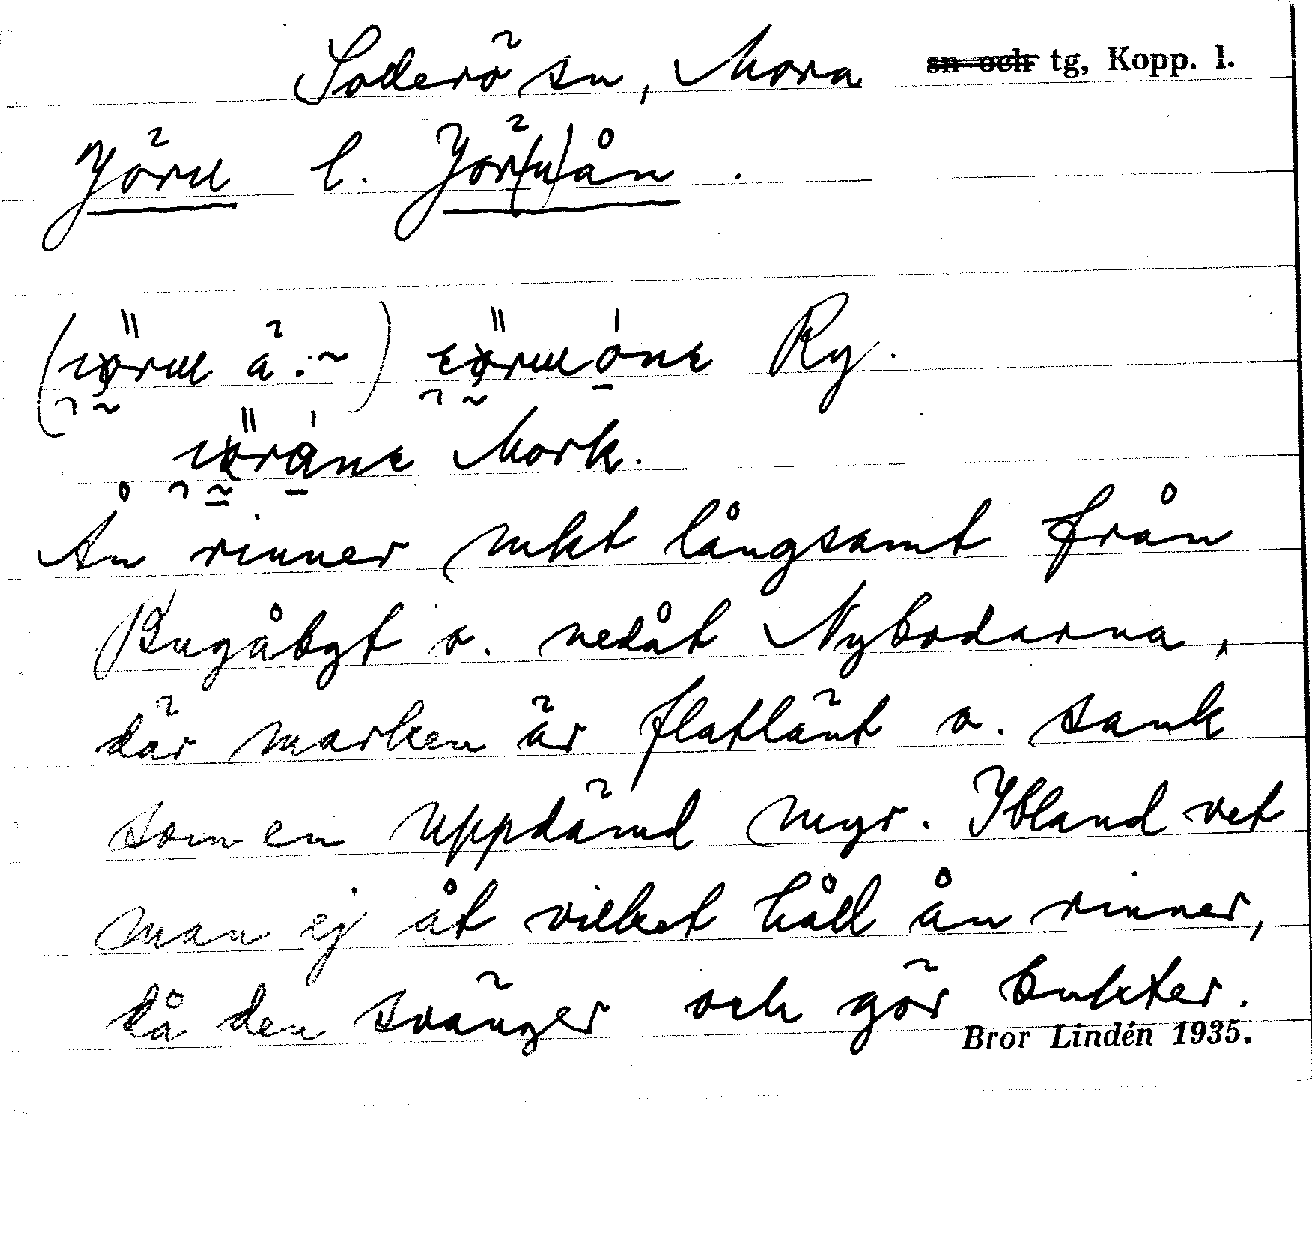 Sollerö sn, Mora sn och tg, Kopp. l.
Jöru l. Jör(u)ån .
Ry.
Mork.
Ån rinner mkt långsamt från
Bugåbgt o. nedåt Nybodarna,
där marken är flatlänt o. sank
som en uppdämd myr. Ibland vet
man ej åt vilket håll ån rinner,
då den svänger och gör bukter.
Bror Lindén 1935.